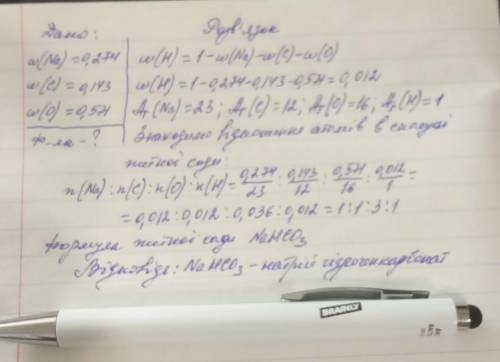 Дано:
Розв'язок
w(Na)=0,274
w(H) = 1-w(Na)-w(C)-w(O)
w(C)=0,143
w(H) = 1-0,274-0,143-0,571=0,012
w(O)=0,571
Ar(Na)=23; Ar(C)=12; Ar(O)=16; Ar(H)=1
Ф-ла-?
Знаходимо відношення атомів в сполуці
питної соди:
n(Na):n(C):n(O):n(H)=0,274/23:0,143/12:0,571/16:0,012/1=
=0,012:0,012:0,036:0,012=1:1:3:1
Формула питної соди NaHCO₃
Відповідь: NaHCO₃-натрій гідрогенкарбонат
BRAINLY